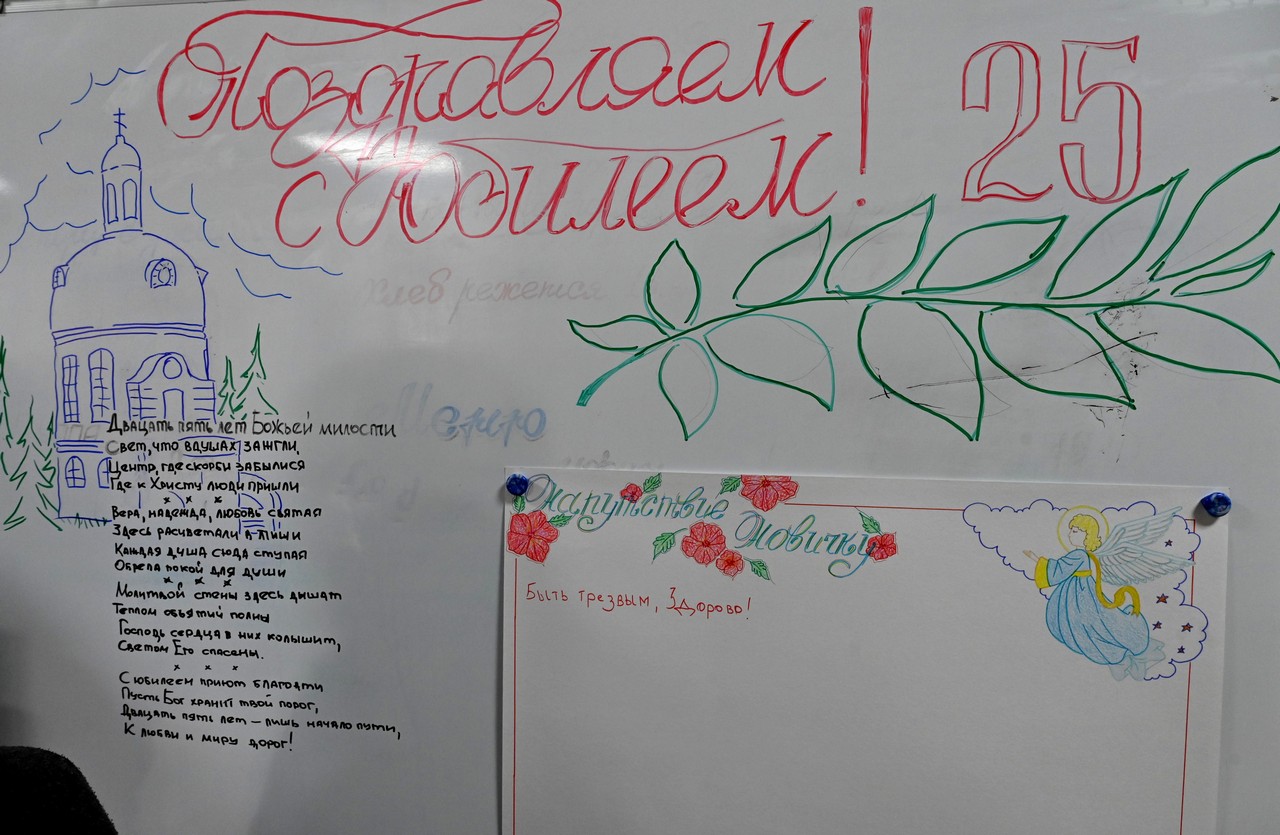 Поздравляем
с Юбилеем!
25
Хлеб режется
Меню
Двацать пять лет Божьей милости
Свет, что вдушах зажгли,
Центр, где скорби забылися
Где к Христу люди пришли
х х х
Вера, надежда, любовь святая
Здесь расцветали в тиши
Каждая душа сюда ступая
Обрела покой для души
х х х
Молитвой стены здесь дышат
Теплом обьятий полны
Господь сердца в них колышит,
Светом Его спасены.
х х х
С юбилеем приют благодати
Пусть Бог хранит твой порог,
Двацать пять лет – лишь начало пути,
К любви и миру дорог!
Напутствие Новичку
Быть трезвым, Здорово!